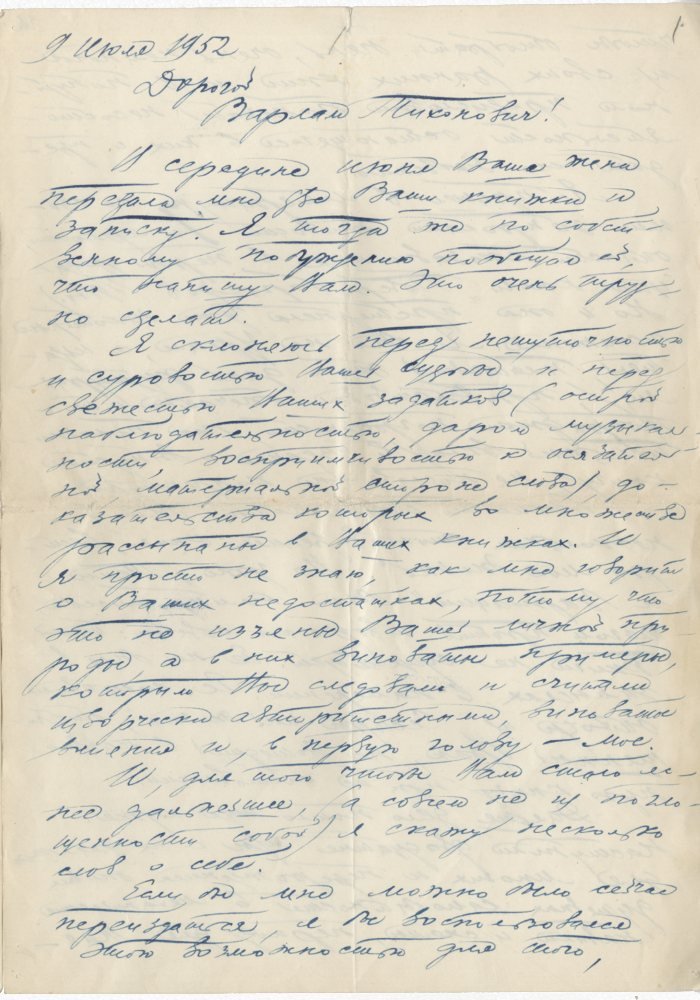 9 июля 1952
Дорогой
Варлам Тихонович!
В середине июня Ваша жена
передала мне две Ваши книжки и
записку. Я тогда же по собст-
венному побуждению пообещал ей,
что напишу Вам. Это очень труд-
но сделать.
Я склоняюсь перед нешуточностью
и суровостью Вашей судьбы и перед
свежестью Ваших задатков (острой
наблюдательностью, даром музыкаль-
ности, восприимчивостью к осязатель-
ной, материальной стороне слова), до-
казательства которых во множестве
рассыпаны в Ваших книжках. И
я просто не знаю, как мне говорить
о Ваших недостатках, потому что
это не изъяны Вашей личной при-
роды, а в них виноваты примеры,
которым Вы следовали и считали
творчески авторитетными, виноваты
влияния и, в первую голову – мое.
И, для того чтобы Вам стало яс-
нее дальнейшее, (а совсем не из погло-
щенности собой) я скажу несколько
слов о себе.
Если бы мне можно было сейчас
переиздаться, я бы воспользовался
этою возможностью для того,